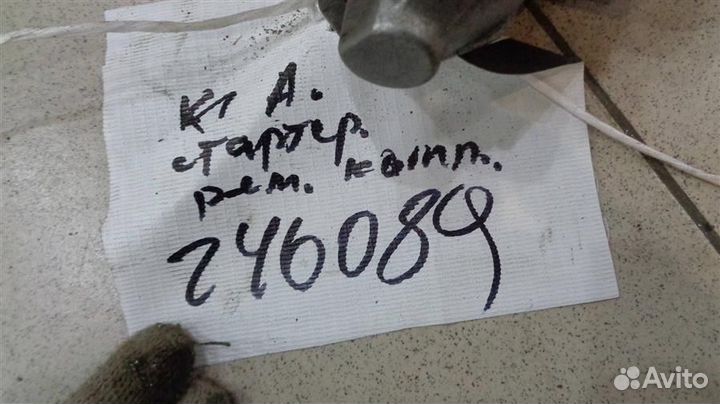 кт А.
стартер.
рем. комп.
246089
Avito